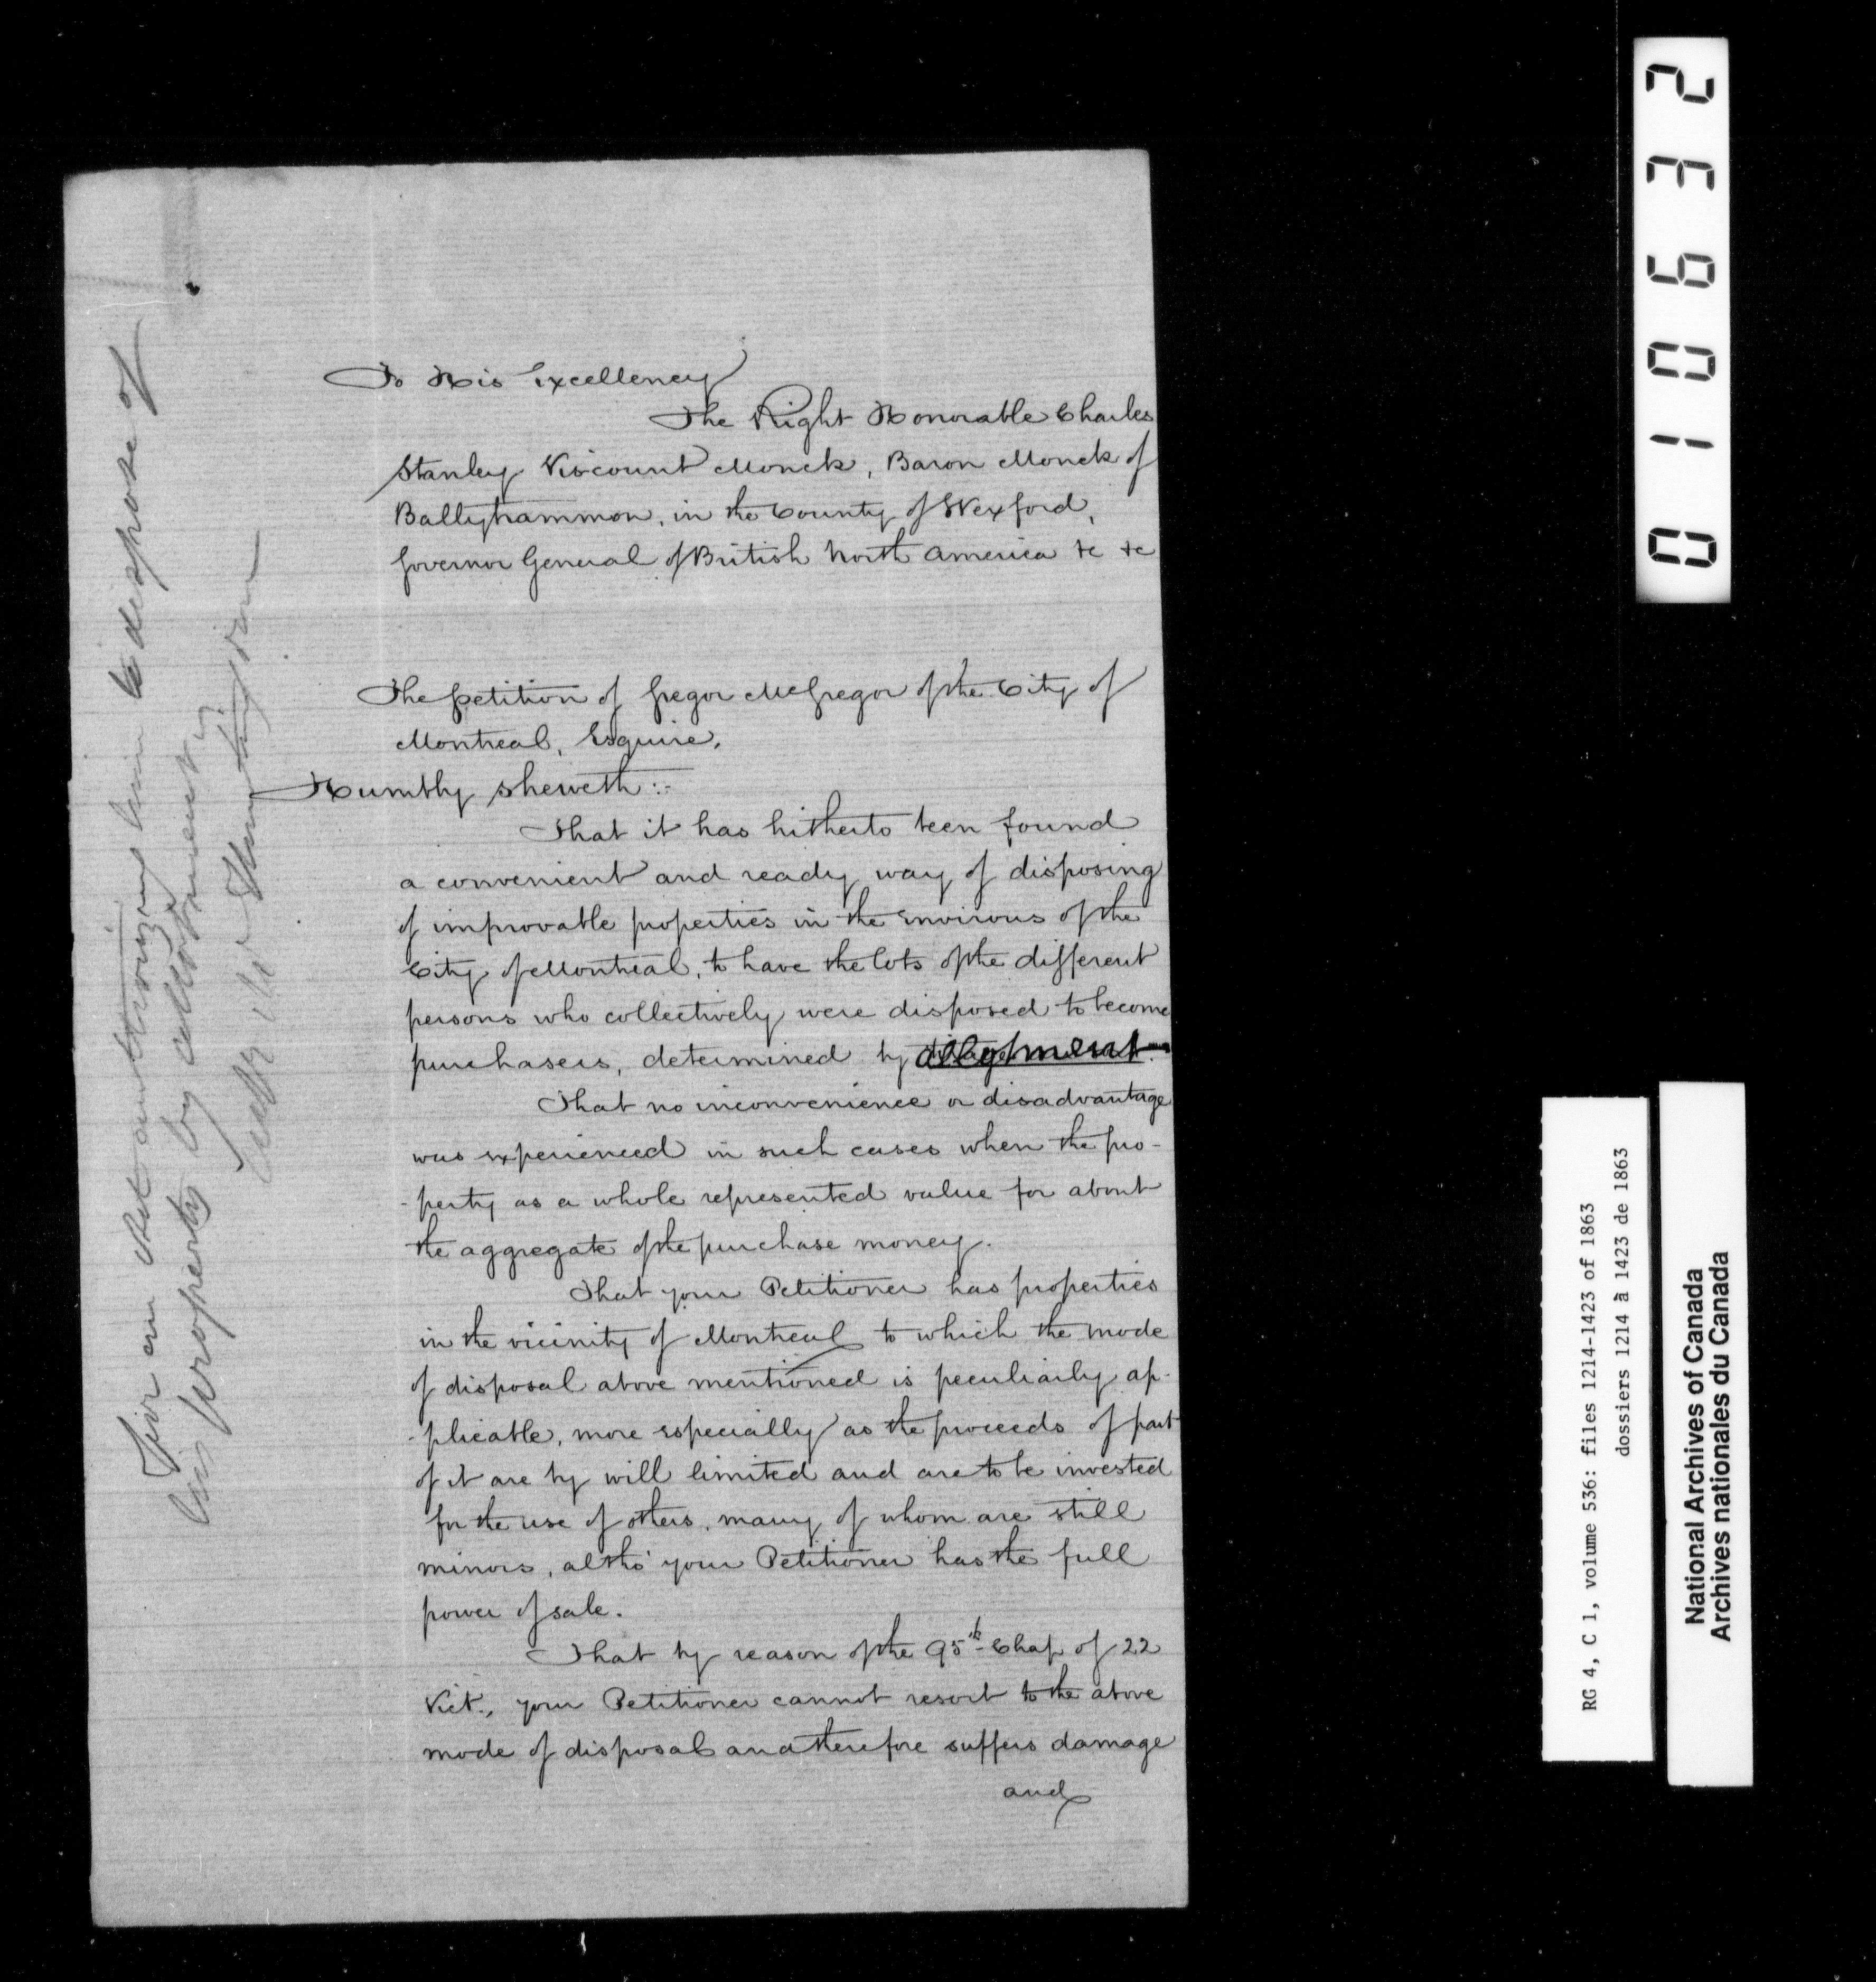 To His Excellency
The Right Honorable Charles
Stanley Viscount Monck, Baron Monck of
Ballytrammon, in the County of Wexford,
Governor General of British North America &c &c
The petition of Gregor McGregor of the City of
Montreal, Esquire,
Humbly sheweth :-
That it has hitherto been found
a convenient and ready way of disposing
of improvable properties in the environs of the
City of Montreal, to have the lots of the different
persons who collectively were disposed to become
purchasers, determined by allotment.
That no inconvenience or disadvantage
was experienced in such cases when the pro-
-perty as a whole represented value for about
the aggregate of the purchase money.
That your Petitioner has properties
in the vicinity of Montreal to which the mode
of disposal above mentioned is peculiarly ap-
-plicable, more especially as the proceeds of part
of it are by will limited and are to be invested
for the use of others, many of whom are still
minors, altho' your Petitioner has the full
power of sale.
That by reason of the 95th Chap of 22
Vict., your Petitioner cannot resort to the above
mode of disposal and therefore suffers damage
and
For an Act authorizing him to dispose of
his property by allotment
Huntingdon
010632
RG 4, C 1, volume 536: files 1214-1423 of 1863
dossiers 1214 à 1423 de 1863
National Archives of Canada
Archives nationales du Canada